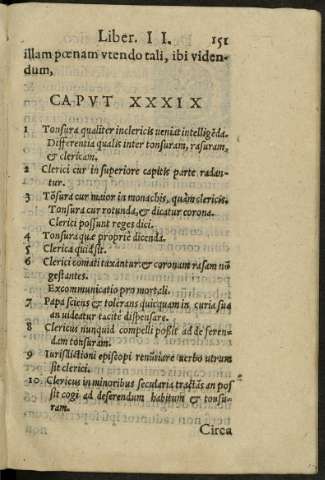 Liber. II. 151
illam pœnam vtendo tali, ibi viden-
dum,
CAPVT XXXIX
1 Tonsura qualiter in clericis ueniat intelligēda.
Differentia qualis inter tonsuram, rasuram,
& clericam.
2 Clerici cur in superiore capitis parte radan-
tur.
3 Tōsura cur maior in monachis, quàm clericis.
Tonsura cur rotunda, & dicatur corona.
Clerici possunt reges dici.
4 Tonsura quæ propriè dicenda.
5 Clerica quid sit.
6 Clerici comati taxantur: & coronam rasam nō
gestantes.
Excommunicatio pro mortali.
7 Papa sciens & tolerans quicquam in curia sua
an uideatur tacitè dispensare.
8 Clericus nunquid compelli possit ad deferen-
dam tonsuram.
9 Iurisdictioni episcopi renūtiare uerbo utrum
sit clerici.
10 Clericus in minoribus secularia tractās an pos
sit cogi ad deferendum habitum & tonsu-
ram.
Circa